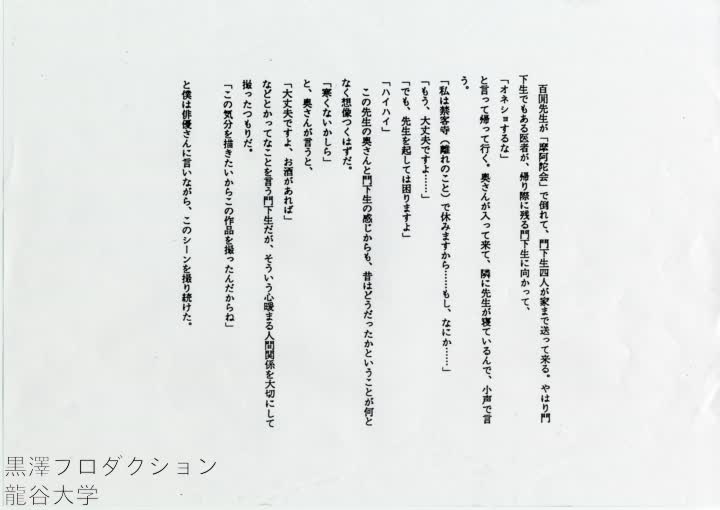 百閒先生が「摩阿陀会」で倒れて、門下生四人が家まで送って来る。やはり門
下生でもある医者が、帰り際に残る門下生に向かって、
「オネショするな」
と言って帰って行く。奥さんが入って来て、隣に先生が寝ているんで、小声で言
う。
「私は禁客寺（離れのこと）で休みますから……もし、なにか……」
「もう、大丈夫ですよ……」
「でも、先生を起しては困りますよ」
「ハイハイ」
この先生の奥さんと門下生の感じからも、昔はどうだったかということが何と
なく想像つくはずだ。
「寒くないかしら」
と、奥さんが言うと、
「大丈夫ですよ、お酒があれば」
などとかってなことを言う門下生だが、そういう心暖まる人間関係を大切にして
撮ったつもりだ。
「この気分を描きたいからこの作品を撮ったんだからね」
と僕は俳優さんに言いながら、このシーンを撮り続けた。
黒澤プロダクション
龍谷大学